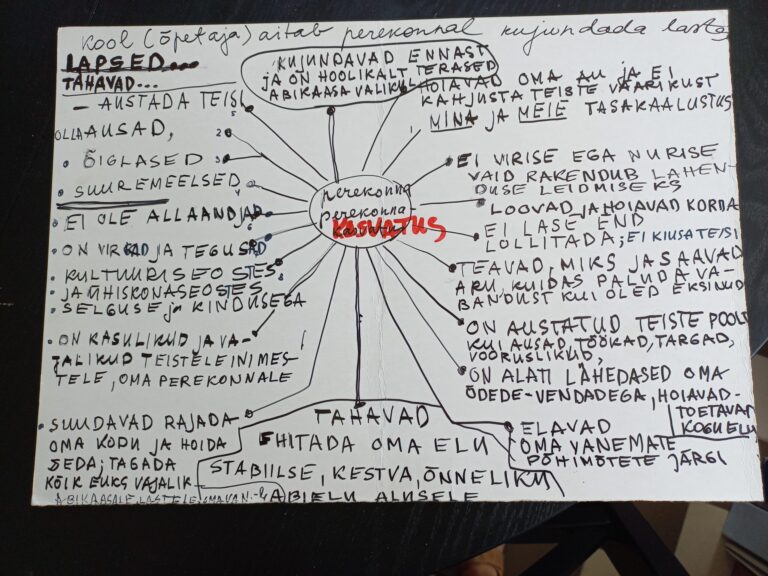 Kool (õpetaja) aitab perekonnal kujundada lastes
LAPSED...
TAHAVAD...
– AUSTADA TEISI
OLLA AUSAD,
• ÕIGLASED
• SUUREMEELSED
• EI OLE ALLAANDJAD
• ON VIRKAD JA TEGUSAD
• KULTUURISEOSTES
• JA ÜHISKONASEOSTES
• SELGUSE ja KINDUSEGA
• ON KASULIKUD JA VA-
JALIKUD TEISTELE INIMES
TELE, OMA PEREKONNALE
• SUUDAVAD RAJADA
OMA KODU JA HOIDA
SEDA; TAGADA
KÕIK ELUKS VAJALIK
ABIKAASALE, LASTELE,
KUJUNDAVAD ENNAST
JA ON HOOLIKALT TERASED
ABIKAASA VALIKUL
perekonna
perekonna
kasvatus
KASVATUS
HOIAVAD OMA AU JA EI
KAHJUSTA TEISTE VÄÄRIKUST
MINA JA MEIE TASAKAALUSTUS
EI VIRISE EGA NURISE
VAID RAKENDUB LAHEN-
DUSE LEIDMISEKS
LOOVAD JA HOIAVAD KORDA
EI LASE END
LOLLITADA; EI KIUSA TEISI
TEAVAD, MIKS JA SAAVAD
ARU, KUIDAS PALUDA VA-
BANDUST KUI OLED EKSINUD
ON AUSTATUD TEISTE POOLT
KUI AUSAD, TÖÖKAD, TARGAD,
VOORUSLIKUD,
ON ALATI LÄHEDASED OMA
ÕDEDE-VENDADEGA, HOIAVAD-
TOETAVAD
KOGU ELU
ELAVAD
OMA VANEMATE
PÕHIMÕTETE JÄRGI
TAHAVAD
EHITADA OMA ELU
STABIILSE, KESTVA, ÕNNELIKU
ABIELU ALUSELE